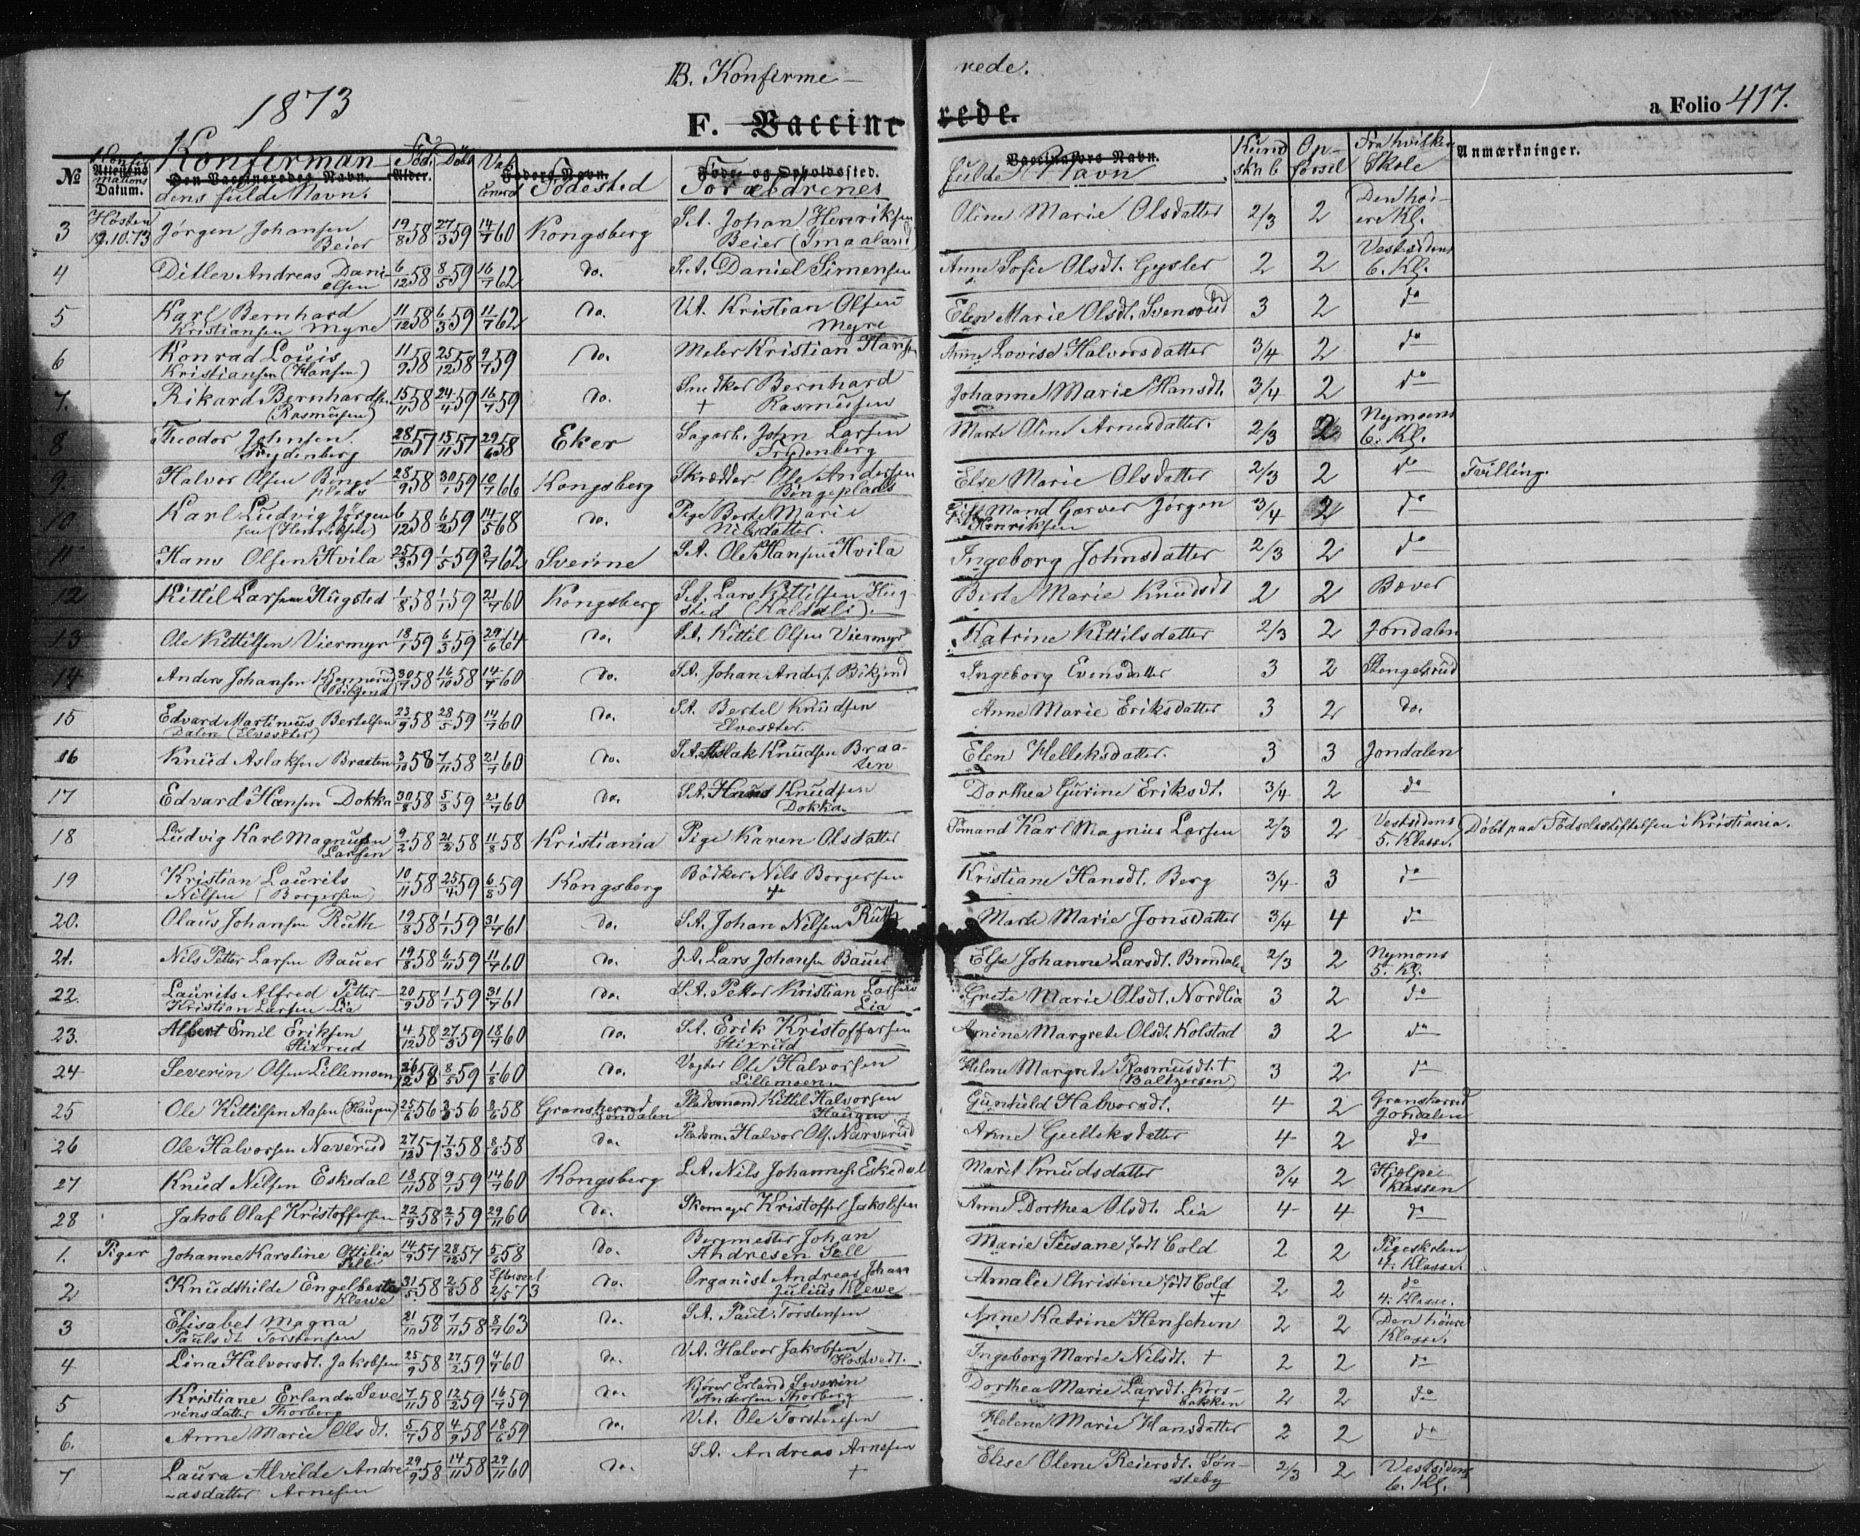 1873
B. Konfirme-
rede.
F. Vaccine
rede.
a Folio 417.
№
Konfirmations
Attestens Datum.
Konfirman
Den Vaccineredes Navn.
dens fulde Navn.
Fød.
Alder.
Døbt
Vac cinerd
Fødested
Føde og Opholdssted.
Forældrenes
Vaccinators Navn.
fulde Navn
Kund skab
Op førsel
Fra hvilken Skole
Anmærkninger.
3 Høsten 12.10.73 Jørgen Johansen Beier 19/8 58 27/3 59 14/7 60 Kongsberg S.A. Johan Henriksen Beier (Smaaland) Oline Marie Olsdatter 2/3 2 Den høiere Kl.
4 Ditlev Andreas Danielsen 6/12 58 8/5 59 16/7 62 do. S.A. Daniel Simensen Anne Sofie Olsdt. Gysler 2 2 Vestsidens 6. Kl.
5 Karl Bernhard Kristiansen Myre 11/12 58 6/3 59 11/7 62 do. V.A. Kristian Olsen Myre Elen Marie Olsdt. Svensrud 3 2 do
6 Konrad Louis Kristiansen (Hansen) 11/9 58 25/12 58 9/7 59 do. Maler Kristian Hansen Anne Lovise Halvorsdatter 3/4 2 do
7. Rikard Bernhardsen (Rasmusen) 15/11 58 24/4 59 16/7 59 do. Snedker Bernhard Rasmusen + Johanne Marie Hansdt. 3/4 2 do
8 Theodor Johnsen Frydenberg 28/10 57 15/11 57 29/6 58 Eker Sagarb. John Larsen Frydenberg Marte Oline Arnesdatter. 2/3 2 Nymoens 6. Kl.
9. Halvor Olsen Bingeplads 28/9 58 30/1 59 10/7 66 Kongsberg Skrædder Ole Andersen Bingeplads Else Marie Olsdatter 2/3 2 do Tvilling.
10 Karl Ludvig Jørgensen (Henriksen) 6/12 58 6/2 59 14/5 68 do. Pige Berte Marie Nilsdatter. Gift Mand Garver Jørgen Henriksen 3/4 2 do
11 Hans Olsen Hvila 25/3 59 1/5 59 3/7 62 Svenne S.A. Ole Hansen Hvila Ingeborg Johnsdatter 2/3 2 do
12 Kittil Larsen Hugsted 1/8 58 1/1 59 21/7 60 Kongsberg S.A. Lars Kittilsen Hugsted (Kaldali). Berte Marie Knudsdt 2 2 Bæver
13 Ole Kittilsen Viermyr 18/1 59 6/3 59 29/6 64 do. S.A. Kittil Olsen Viermyr Katrine Kittilsdatter 2/3 2 Jondalen
14 Anders Johansen (Bikjend) 30/7 58 16/10 58 14/7 60 do. S.A. Johan Anders. Bikjend Ingeborg Evensdatter 3 2 Stengelsrud
15 Edvard Martinius Bertelsen Dalen (Elvesæter) 23/9 58 28/5 59 14/7 60 do. S.A. Bertel Knudsen Elvesæter Anne Marie Eriksdatter 3 2 do.
16 Knud Aslaksen Braaten 3/10 58 7/11 58 21/7 60 do. S.A. Aslak Knudsen Braaten Elen Helleksdatter. 3 3 Jondalen
17 Edvard Hansen Dokka 30/8 58 5/3 59 21/7 60 do. S.A. Hans Knudsen Dokka Dorthea Gurine Eriksdt. 3/4 2 do
18 Ludvig Karl Magnusen Larsen 9/2 58 21/2 58 11/8 58 Kristiania Pige Karen Olsdatter Sømand Karl Magnus Larsen 2/3 2 Vestsidens 5. Klasse. Døbt paa Fødselsstiftelsen i Kristiania.
19 Kristian Laurits Nilsen (Borgersen) 10/11 58 25/4 59 6/8 59 Kongsberg Bødker Nils Borgersen + Kristiane Hansdt. Berg 3/4 3 do
20. Olaus Johansen Ruth 19/8 58 1/1 59 31/7 61 do. S.A. Johan Nilsen Ruth Marte Marie Jonsdatter 3/4 4 do
21. Nils Petter Larsen Bauer 19/8 58 6/11 59 11/7 60 do. S.A. Lars Johansen Bauer Else Johanne Larsdt. Brondalen 2/3 2 Nymons 5. Kl.
22. Laurits Alfred Petter Kristian Larsen Lia 20/9 58 1/1 59 31/7 61 do. S.A. Petter Kristian Larsen Lia Grete Marie Olsdt. Nordlia 3 2 do
23. Albert Emil Eriksen Stixrud 4/12 58 27/3 59 18/7 60 do. S.A. Erik Kristoffersen Stixrud Amine Margrete Olsdt. Kolstad 3 2 do
24 Severin Olsen Lillemoen 26/12 58 8/5 59 1/8 60 do. Vogter Ole Halvorsen Lillemoen Helene Margrete Rasmusdt. + (Baltzersen) 3 2 do
25 Ole Kittilsen Aasen (Haugen) 25/6 56 3/8 56 8/6 58 Gransherred Jondalen Pladsmand Kittil Halvorsen Haugen Gunhild Halvorsdt. 4 2 Gransherred Jondalen
26 Ole Halvorsen Naverud 27/12 57 7/3 58 8/6 58 do. Pladsm. Halvor Ols. Narverud Anne Gulleksdatter 4 2 do
27 Knud Nilsen Eskedal 18/11 58 9/1 59 14/7 60 Kongsberg S.A. Nils Johannes. Eskedal Marit Knudsdatter 3/4 2 Hjelpeklassen
28 Jakob Olaf Kristoffersen 22/9 58 2/1 59 29/11 60 do. Skomager Kristoffer Jakobsen Anne Dorthea Olsdt. Lia 4 4 do
1. Piger Johanne Karoline Ottilia Sell 14/9 57 28/12 57 5/6 58 do. Bergmester Johan Andresen Sell Marie Susane født Cold 2 2 Pigeskolen 4. Klasse.
2 Knudshilde Engelberta Klewe 31/5 58 2/8 58 2/5 73 do. Organist Andreas Johan Julius Klewe Amalie Christine født Cold + 2 2 do 4. Klasse.
3 Elisabet Magna Paulsdt Torstensen 21/10 58 7/11 58 8/7 63 do. S.A. Paul Torstensen Anne Katrine Henschen 2 2 Den høiere Klasse.
4 Lina Halvorsdt. Jakobsen 25/9 58 27/2 59 4/7 60 do. V.A. Halvor Jakobsen Hostvedt. Ingeborg Marie Nilsdt. + 2 2 do
5 Kristiane Erlanda Severinsdatter Thorberg 7/11 58 12/2 59 16/7 59 do. Kjører Erland Severin Andersen Thorberg Dorthea Marie Larsdt. Korsbakken + 2 2 do
6. Anne Marie Olsdt. 5/7 58 4/9 58 18/6 59 do. V.A. Ole Torstensen Helene Marie Hansdatter 2 2 do
7 Laura Alvilde Andreasdatter Arnesen 29/9 58 14/11 58 29/11 60 do. S.A. Andreas Arnesen + Elise Olene Reiersdt. Sønsteby 2/3 2 Vestsidens 6. Kl.